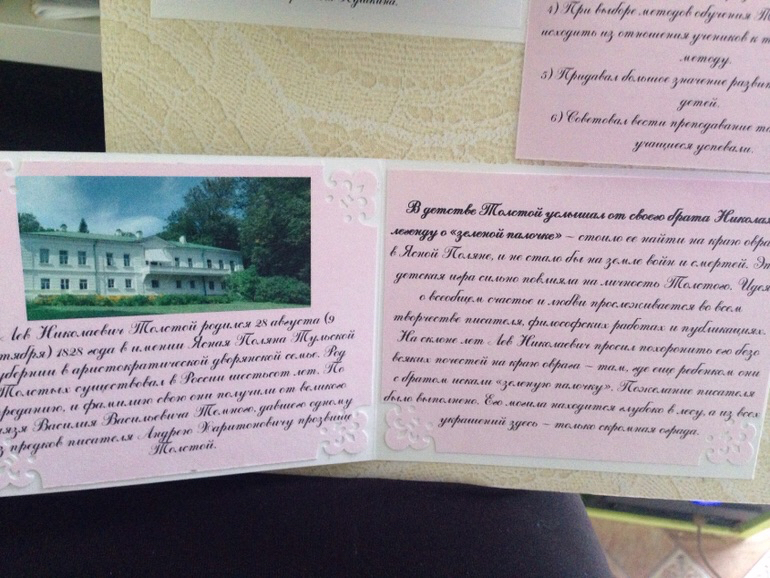 Пушкина.
4) При выборе методов обучения
исходить из отношения учеников к
методу.
5) Придавал большое значение
детей.
6) Советовал вести преподавание
учащиеся успевали.
Лев Николаевич Толстой родился 28 августа (9
1828 года в имении Ясная Поляна Тульской
в аристократической дворянской семье. Род
Толстых существовал в России шестьсот лет. По
и фамилию свою они получили от великого
Василия Васильевича Темного, давшего одному
предков писателя Андрею Харитоновичу прозвище
Толстой.
В детстве Толстой услышал от своего брата
легенду о «зеленой палочке» – стоило ее найти на краю
в Ясной Поляне, и не стало бы на земле войн и смертей.
детская игра сильно повлияла на личность Толстого. Идея
о всеобщем счастье и любви прослеживается во всем
творчестве писателя, философских работах и публикациях.
На склоне лет Лев Николаевич просил похоронить его безо
всяких почестей на краю оврага – там, где еще ребенком они
с братом искали «зеленую палочку». Пожелание писателя
было выполнено. Его могила находится глубоко в лесу, а из всех
украшений здесь – только скромная ограда.